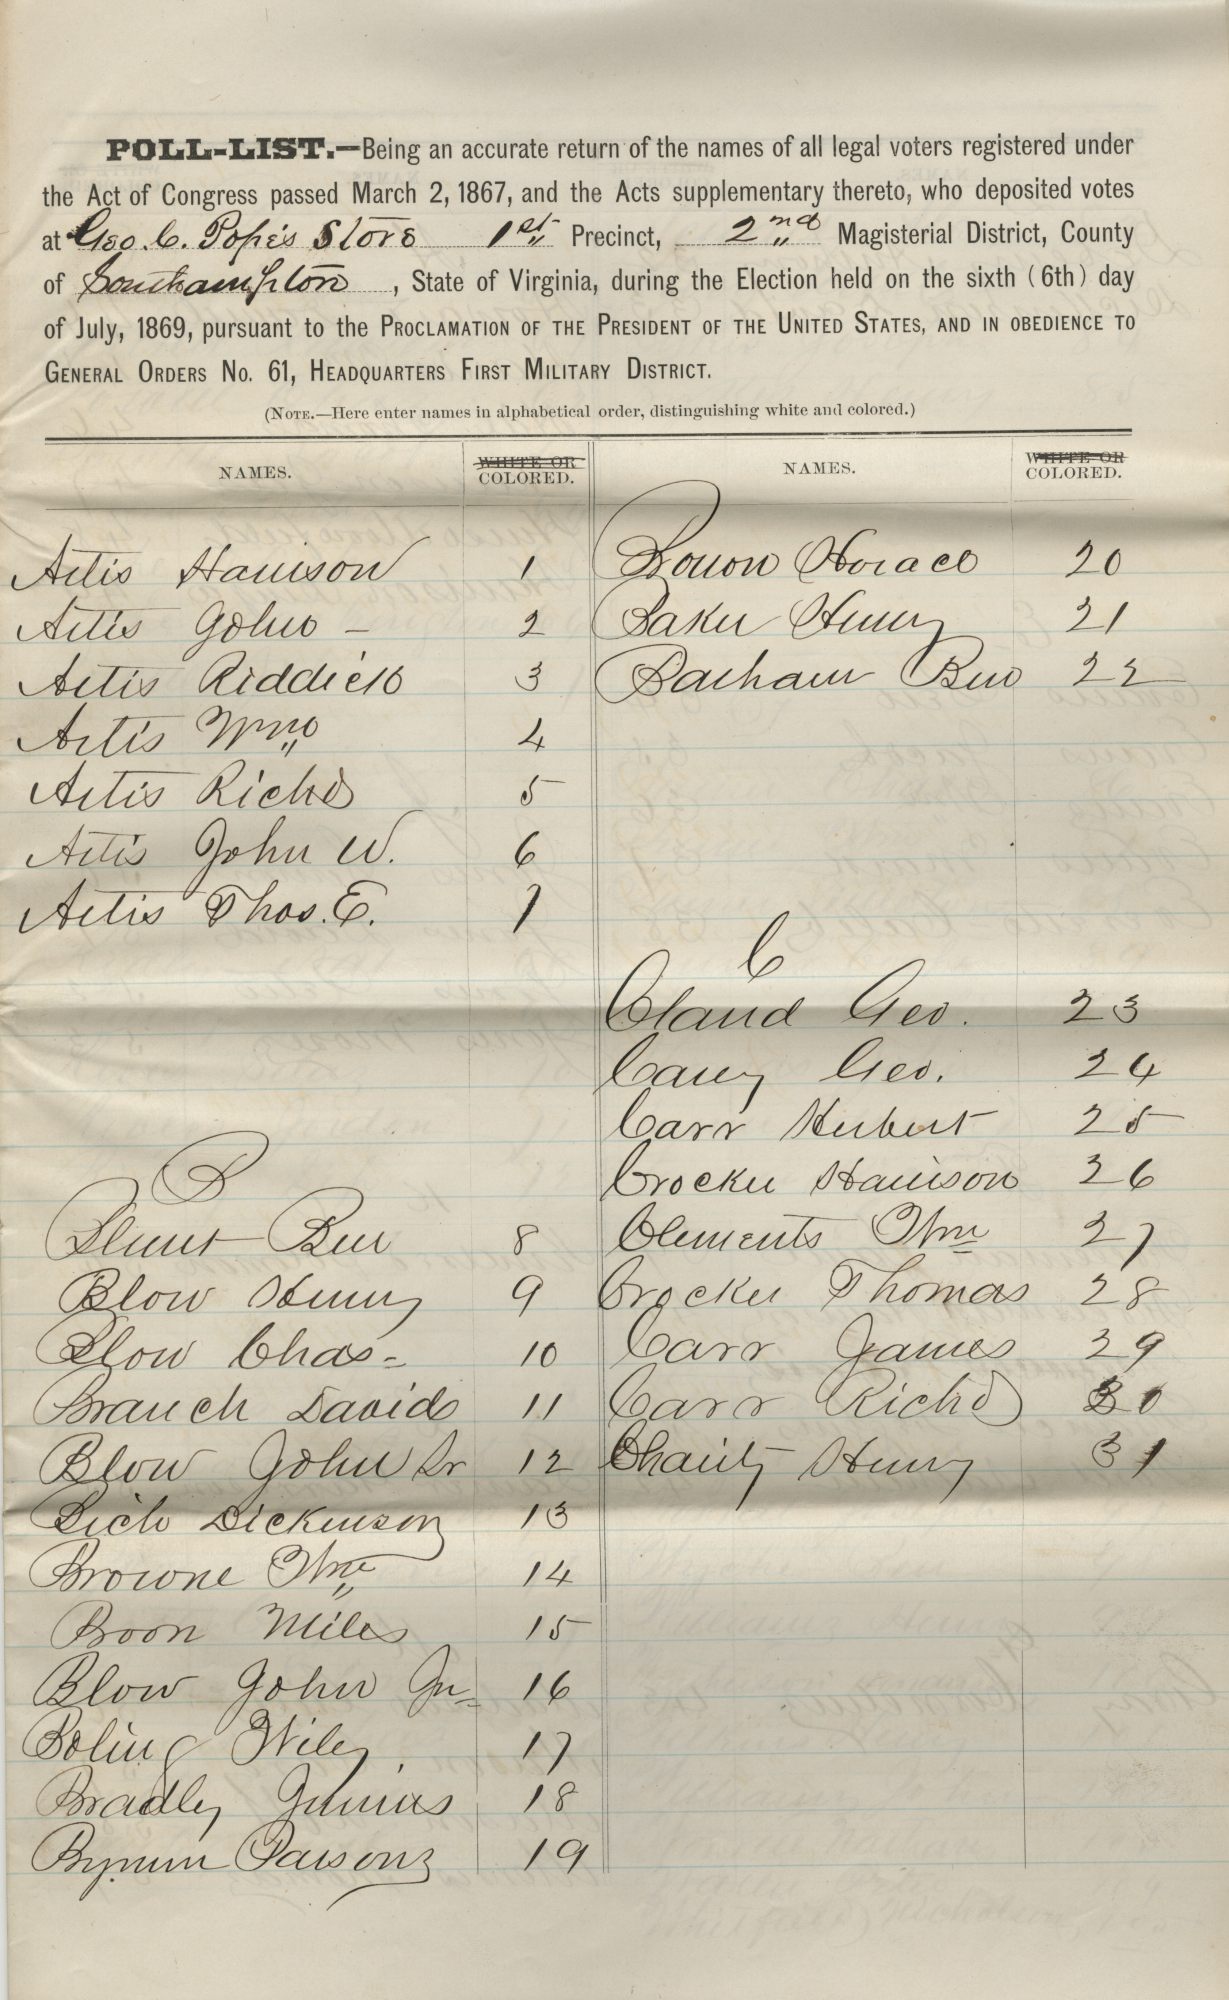 POLL-LIST.—Being an accurate return of the names of all legal voters registered under
the Act of Congress passed March 2, 1867, and the Acts supplementary thereto, who deposited votes
at Geo. C. Pope's Store 1st Precinct, 2nd Magisterial District, County
of Southampton, State of Virginia, during the Election held on the sixth (6th) day
of July, 1869, pursuant to the PROCLAMATION OF THE PRESIDENT OF THE UNITED STATES, AND IN OBEDIENCE TO
GENERAL ORDERS No. 61, HEADQUARTERS FIRST MILITARY DISTRICT.
(NOTE.—Here enter names in alphabetical order, distinguishing white and colored.)
NAMES.
WHITE OR
COLORED.
Artis Harrison 1
Artis John – 2
Artis Riddick 3
Artis Wm 4
Artis Richd 5
Artis John W. 6
Artis Thos. E. 7
B
Blunt Ben 8
Blow Henry 9
Blow Chas- 10
Branch David 11
Blow John Sr 12
Dickenson 13
Browne Wm 14
Boon Miles 15
Blow John Jr 16
Boling Wiley 17
Bradley Junius 18
Bynum Parsons 19
NAMES.
WHITE OR
COLORED.
Horace 20
Baker Henry 21
Barham Ben 22
C
Claud Geo. 23
Carey Geo. 24
Carr Herbert 25
Crocker Harrison 26
Clements Wm 27
Crocker Thomas 28
Carr James 29
Carr Richd 30
Charity Henry 31